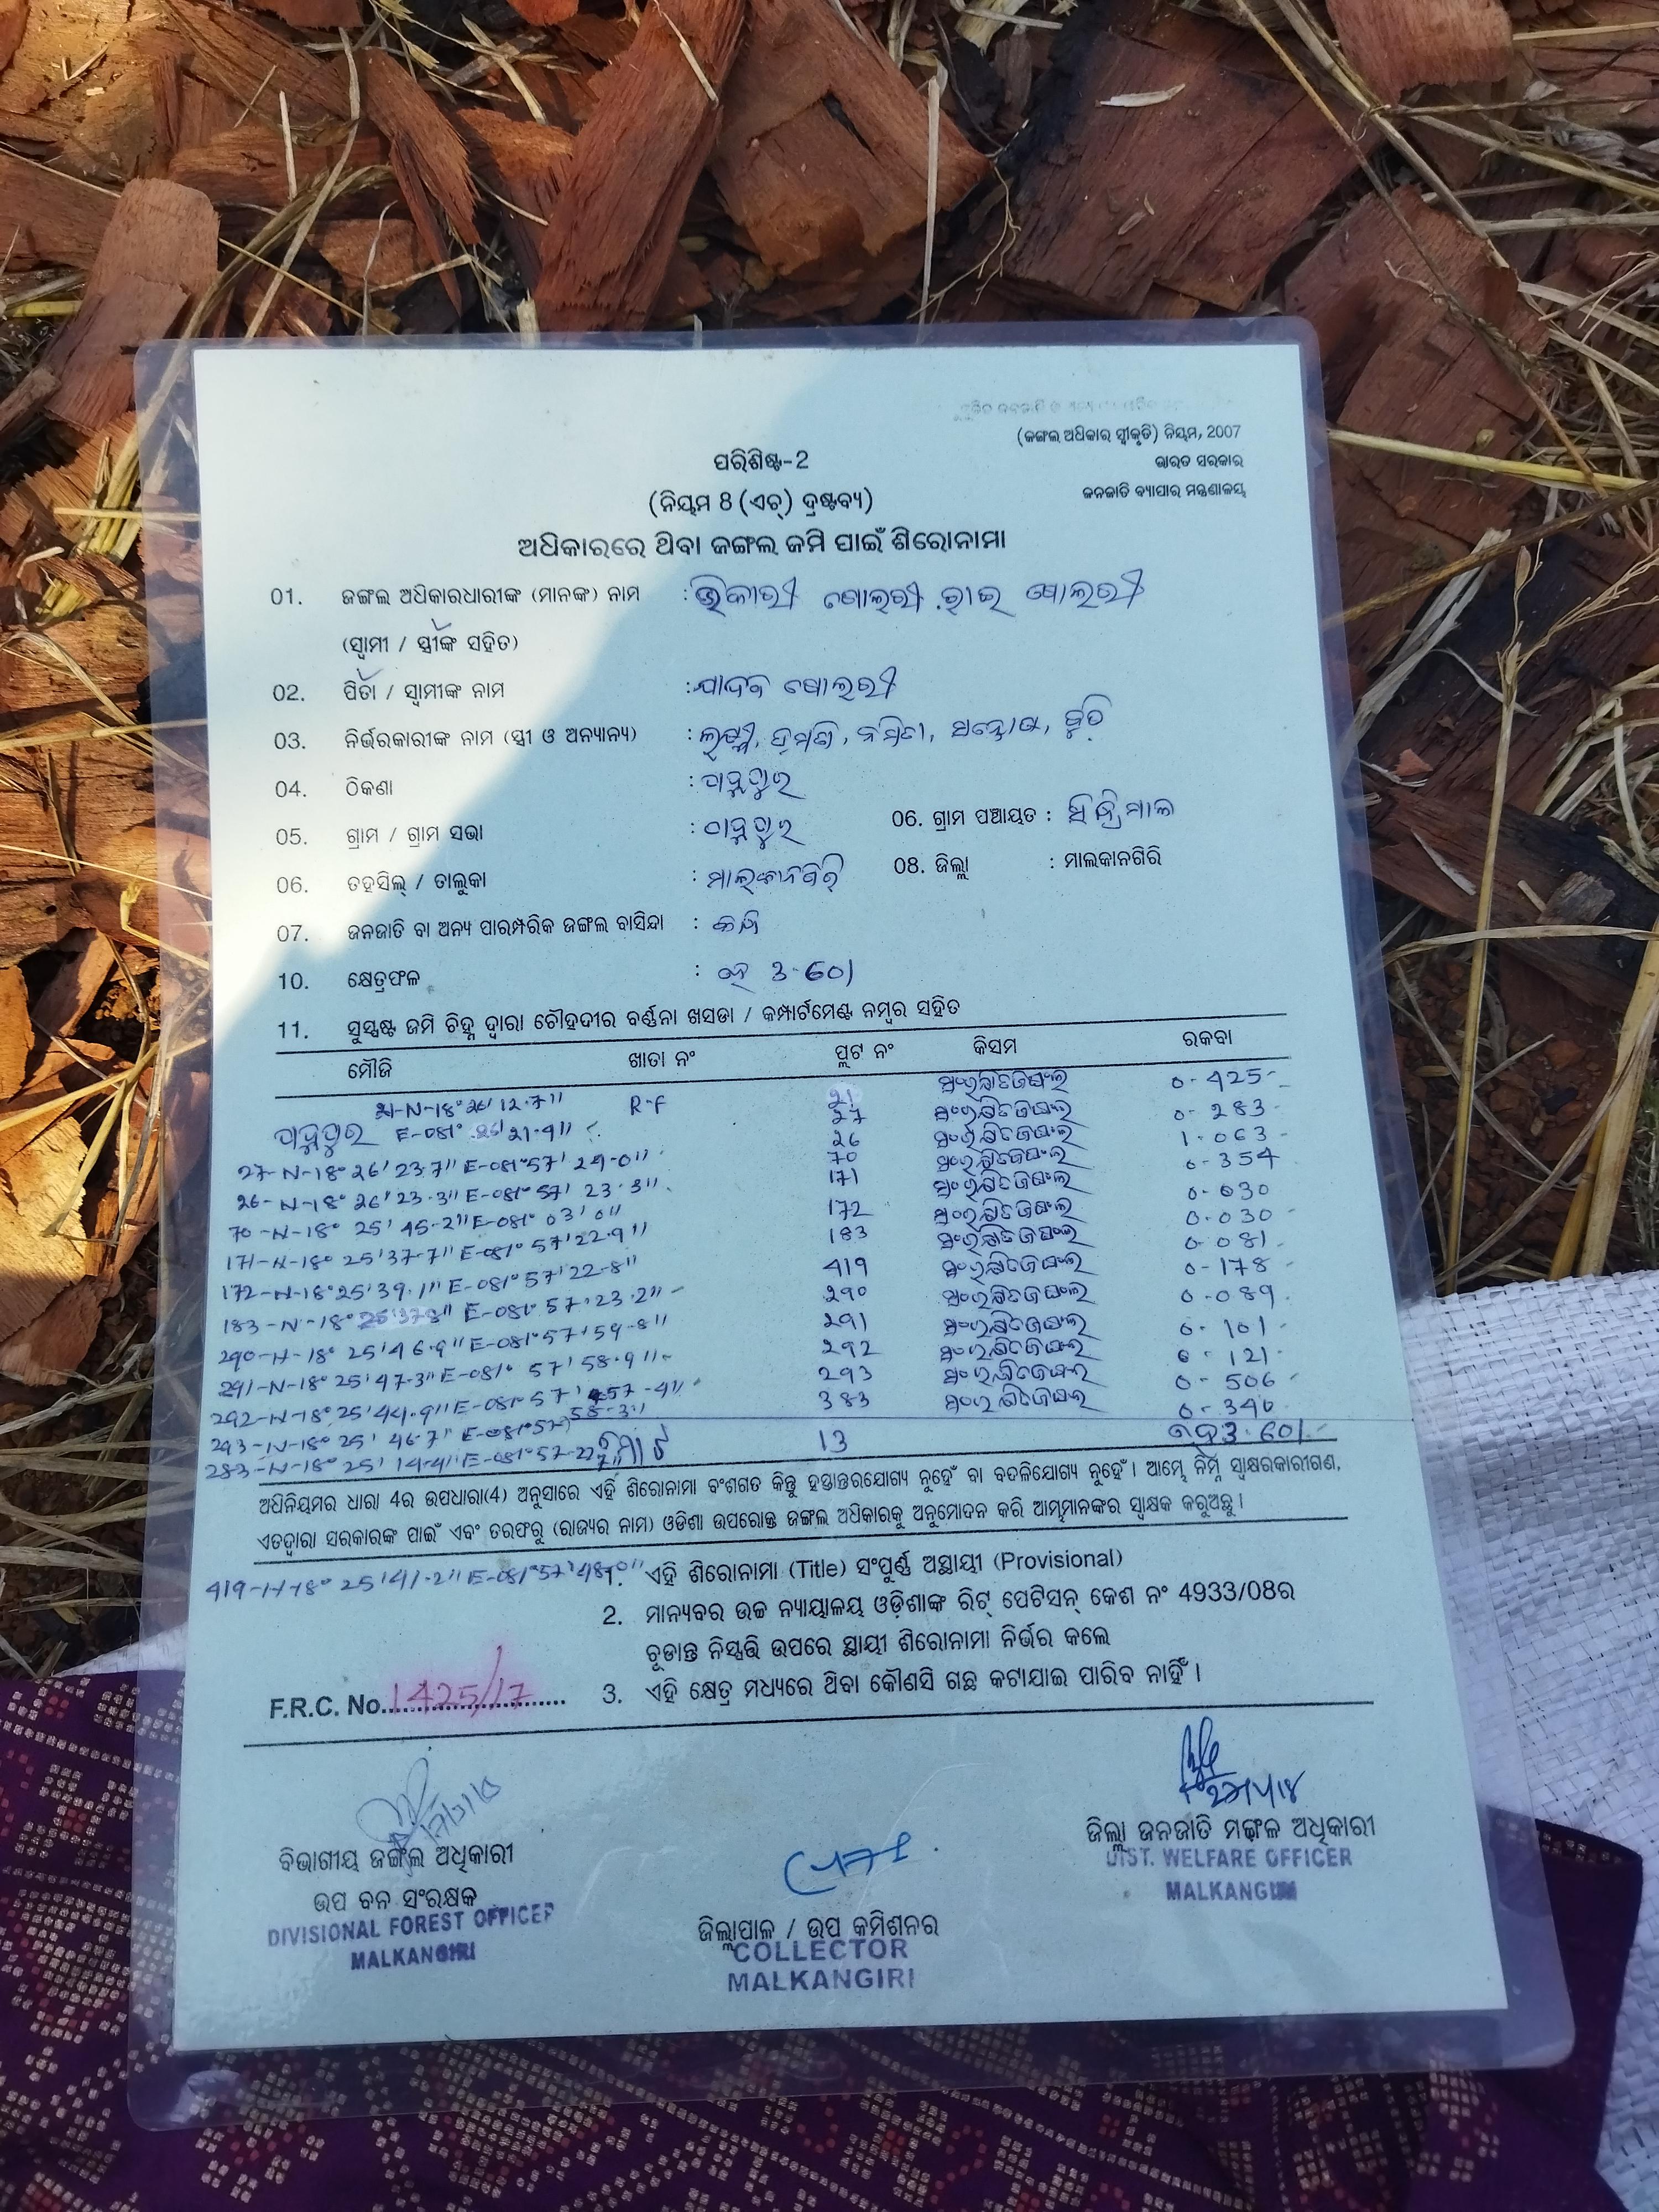 (ଜଙ୍ଗଲ ଅଧିକାର ସ୍ୱୀକୃତି) ନିୟମ, 2007
ପରିଶିଷ୍ଟ-2
ଭାରତ ସରକାର
(ନିୟମ 8 (ଏଚ୍) ଦ୍ରଷ୍ଟବ୍ୟ)
ଜନଜାତି ବ୍ୟାପାର ମନ୍ତ୍ରଣାଳୟ
ଅଧିକାରରେ ଥିବା ଜଙ୍ଗଲ ଜମି ପାଇଁ ଶିରୋନାମା
01. ଜଙ୍ଗଲ ଅଧିକାରଧାରୀଙ୍କ (ମାନଙ୍କ) ନାମ :
(ସ୍ୱାମୀ / ସ୍ତ୍ରୀଙ୍କ ସହିତ)
02. ପିତା / ସ୍ୱାମୀଙ୍କ ନାମ :
03. ନିର୍ଭରକାରୀଙ୍କ ନାମ (ସ୍ତ୍ରୀ ଓ ଅନ୍ୟାନ୍ୟ) :
04. ଠିକଣା :
05. ଗ୍ରାମ / ଗ୍ରାମ ସଭା : 06. ଗ୍ରାମ ପଞ୍ଚାୟତ :
06. ତହସିଲ୍ / ତାଲୁକା : ମାଲକାନଗିରି 08. ଜିଲ୍ଲା : ମାଲକାନଗିରି
07. ଜନଜାତି ବା ଅନ୍ୟ ପାରମ୍ପରିକ ଜଙ୍ଗଲ ବାସିନ୍ଦା :
10. କ୍ଷେତ୍ରଫଳ : ହେ 3.601
11. ସୁସ୍ପଷ୍ଟ ଜମି ଚିହ୍ନ ଦ୍ୱାରା ଚୌହଦୀର ବର୍ଣ୍ଣନା ଖସଡା / କମ୍ପାର୍ଟମେଣ୍ଟ ନମ୍ବର ସହିତ
ମୌଜି ଖାତା ନଂ ପ୍ଲଟ ନଂ କିସମ ରକବା
21-N-18° 26' 12.7" R.F 21 ସଂରକ୍ଷିତ ଜଙ୍ଗଲ 0-425
E-081° 21.9" 27 ସଂରକ୍ଷିତ ଜଙ୍ଗଲ 0-283
27-N-18° 26' 23.7" E-081° 57' 29.0" 26 ସଂରକ୍ଷିତ ଜଙ୍ଗଲ 1.063
26-N-18° 26' 23.3" E-081° 57' 23.3" 70 ସଂରକ୍ଷିତ ଜଙ୍ଗଲ 0-354
70-N-18° 25' 45.2" E-081° 03' 0" 171 ସଂରକ୍ଷିତ ଜଙ୍ଗଲ 0-030
171-N-18° 25' 37.7" E-081° 57' 22.9" 172 ସଂରକ୍ଷିତ ଜଙ୍ଗଲ 0-030
172-N-18° 25' 39.1" E-081° 57' 22.8" 183 ସଂରକ୍ଷିତ ଜଙ୍ଗଲ 0-081
183-N-18° 25' 37.8" E-081° 57' 23.2" 419 ସଂରକ୍ଷିତ ଜଙ୍ଗଲ 0-178
290-N-18° 25' 46.9" E-081° 57' 59.8" 290 ସଂରକ୍ଷିତ ଜଙ୍ଗଲ 0-089
291-N-18° 25' 47.3" E-081° 57' 58.9" 291 ସଂରକ୍ଷିତ ଜଙ୍ଗଲ 0-101
292-N-18° 25' 44.9" E-081° 57' 57.4" 292 ସଂରକ୍ଷିତ ଜଙ୍ଗଲ 0-121
293-N-18° 25' 46.7" E-081° 57' 58.3" 293 ସଂରକ୍ଷିତ ଜଙ୍ଗଲ 0-506
283-N-18° 25' 14.4" E-081° 57' 383 ସଂରକ୍ଷିତ ଜଙ୍ଗଲ 0-340
ମୋଟ 13 ହେ 3.601
ଅଧିନିୟମର ଧାରା 4ର ଉପଧାରା(4) ଅନୁସାରେ ଏହି ଶିରୋନାମା ବଂଶଗତ କିନ୍ତୁ ହସ୍ତାନ୍ତରଯୋଗ୍ୟ ନୁହେଁ ବା ବଦଳିଯୋଗ୍ୟ ନୁହେଁ । ଆମ୍ଭେ ନିମ୍ନ ସ୍ୱାକ୍ଷରକାରୀଗଣ,
ଏତଦ୍ଵାରା ସରକାରଙ୍କ ପାଇଁ ଏବଂ ତରଫରୁ (ରାଜ୍ୟର ନାମ) ଓଡିଶା ଉପରୋକ୍ତ ଜଙ୍ଗଲ ଅଧିକାରକୁ ଅନୁମୋଦନ କରି ଆମ୍ଭମାନଙ୍କର ସ୍ୱାକ୍ଷକ କରୁଅଛୁ ।
419-N-18° 25' 41.2" E-081° 57' 48.0"
1. ଏହି ଶିରୋନାମା (Title) ସଂପୁର୍ଣ୍ଣ ଅସ୍ଥାୟୀ (Provisional)
2. ମାନ୍ୟବର ଉଚ୍ଚ ନ୍ୟାୟାଳୟ ଓଡ଼ିଶାଙ୍କ ରିଟ୍ ପେଟିସନ୍ କେଶ ନଂ 4933/08ର
ଚୂଡାନ୍ତ ନିସ୍ପତ୍ତି ଉପରେ ସ୍ଥାୟୀ ଶିରୋନାମା ନିର୍ଭର କଲେ
3. ଏହି କ୍ଷେତ୍ର ମଧ୍ୟରେ ଥିବା କୌଣସି ଗଛ କଟାଯାଇ ପାରିବ ନାହିଁ ।
F.R.C. No. 1425/17
ବିଭାଗୀୟ ଜଙ୍ଗଲ ଅଧିକାରୀ
ଉପ ବନ ସଂରକ୍ଷକ
DIVISIONAL FOREST OFFICER
MALKANGIRI
ଜିଲ୍ଲାପାଳ / ଉପ କମିଶନର
COLLECTOR
MALKANGIRI
ଜିଲ୍ଲା ଜନଜାତି ମଙ୍ଗଳ ଅଧିକାରୀ
DIST. WELFARE OFFICER
MALKANGIRI